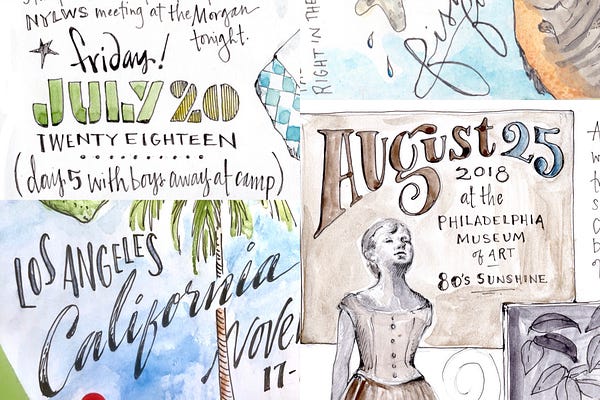 NYLWS meeting at the Morgan
tonight.
friday!
JULY 20
TWENTY EIGHTEEN
(day 5 with boys away at camp)
LOS ANGELES
California
NOVE
17-
RIGHT IN THE
August 25
2018
at the
PHILADELPHIA
MUSEUM
of ART
80's SUNSHINE